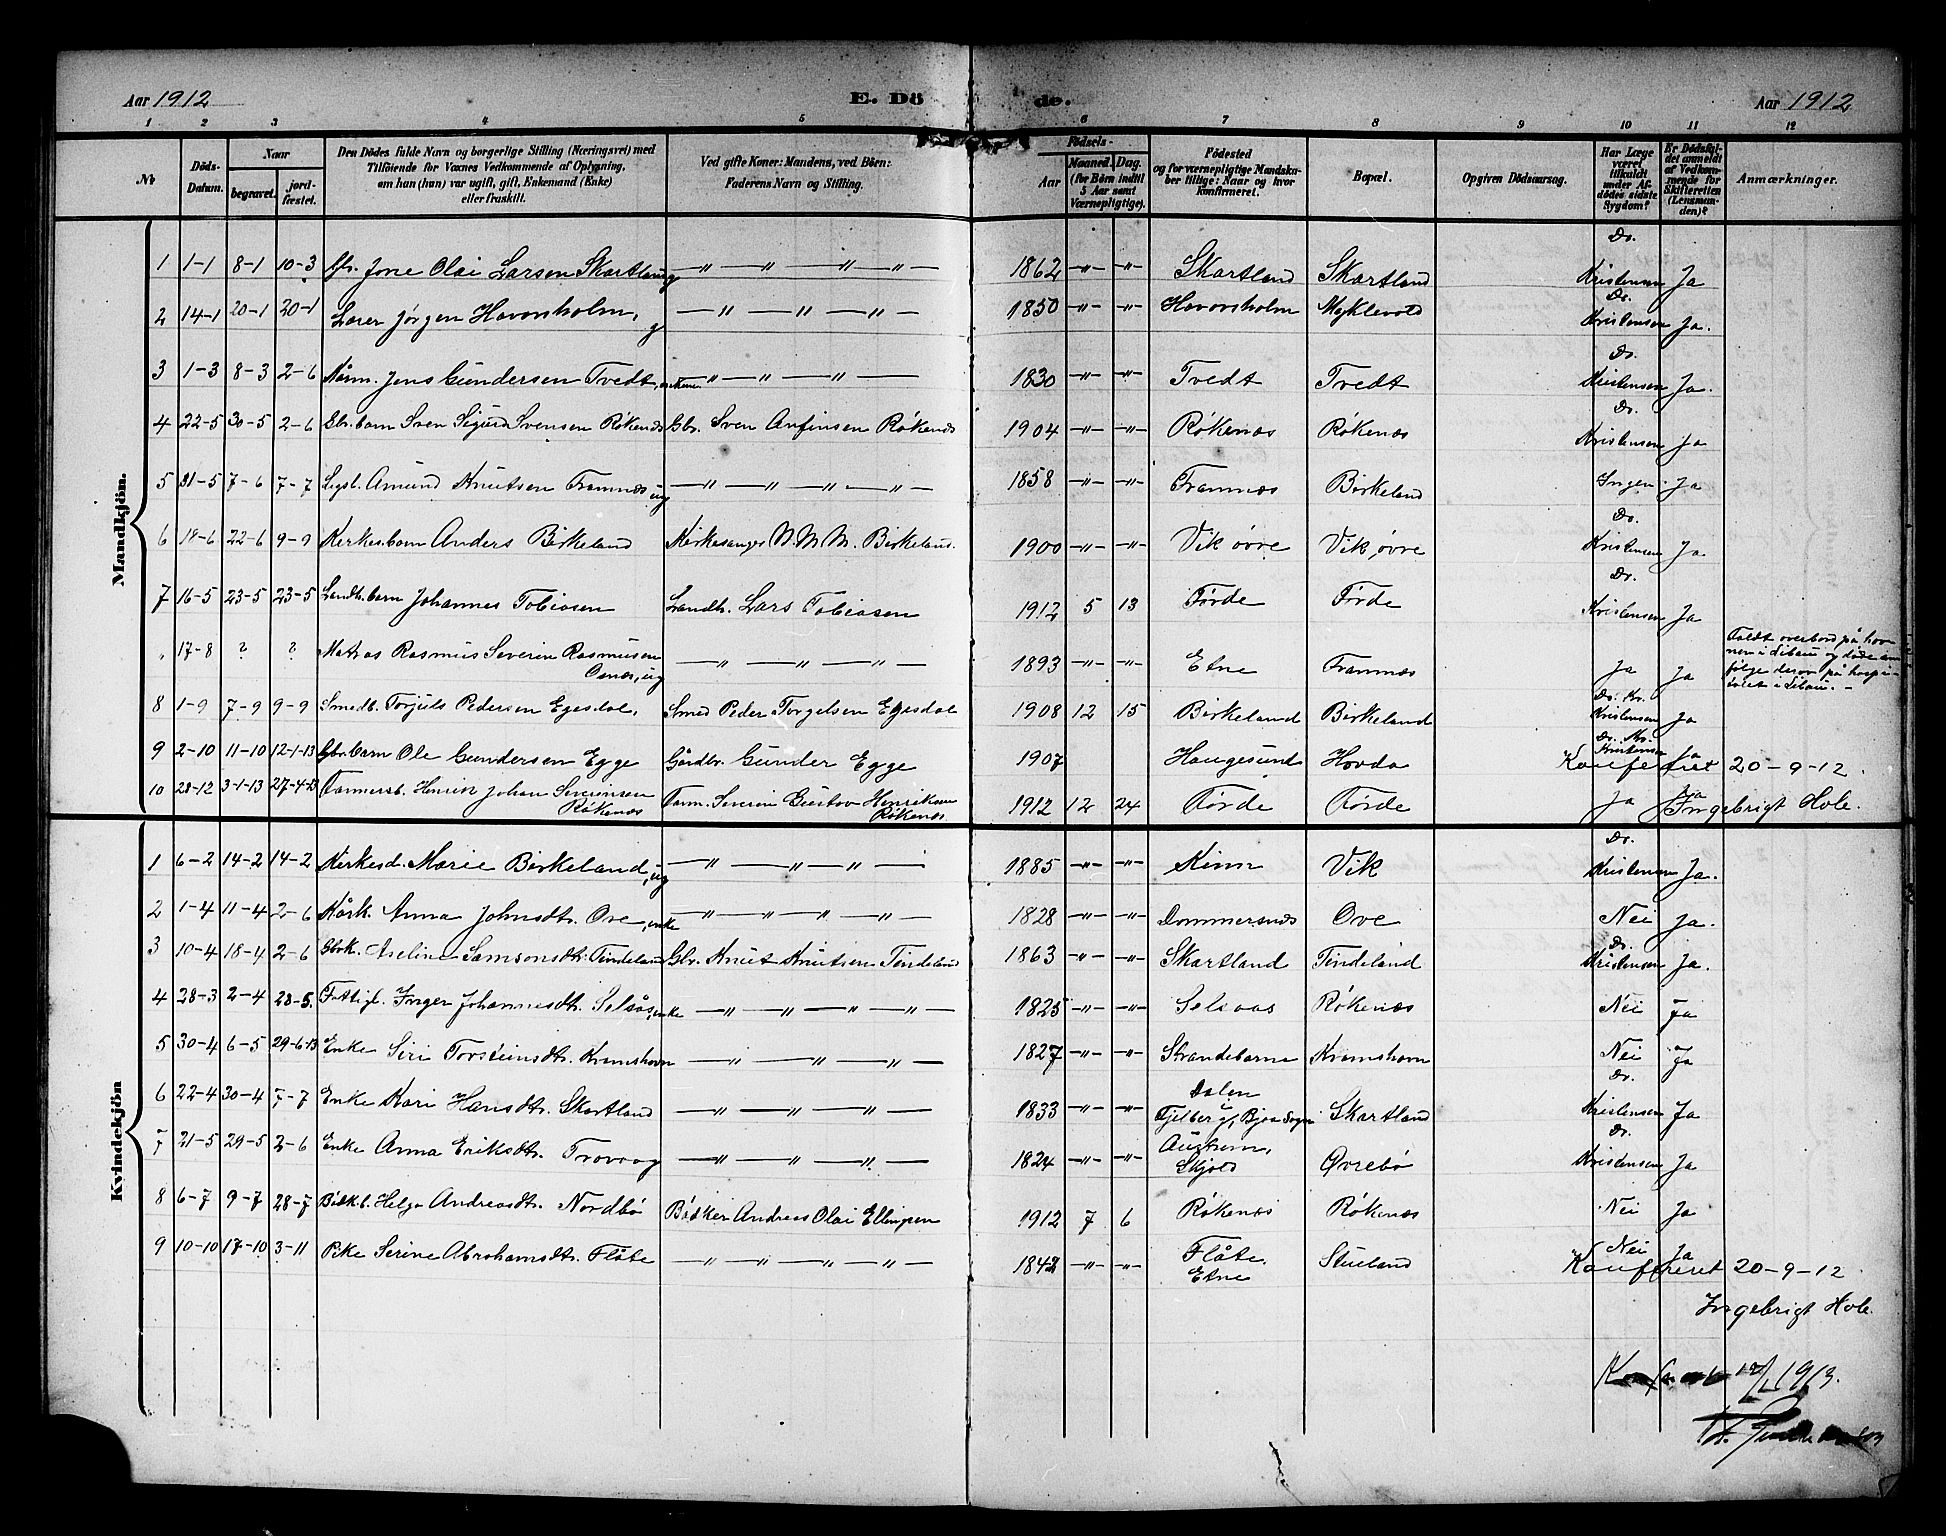 Aar 1912 E. Dö de. Aar 1912
1 2 3 4 5 6 7 8 9 10 11 12
№
Döds-Datum.
Naar
begravet.
jord-fæstet.
Den Dödes fulde Navn og borgerlige Stilling (Næringsvei) med
Tilföiende for Voxnes Vedkommende af Oplysning,
om han (hun) var ugift, gift, Enkemand (Enke)
eller fraskilt.
Ved gifte Koner: Mandens, ved Börn:
Faderens Navn og Stilling.
Födsels-
Aar
Maaned. Dag.
(for Börn indtil
5 Aar samt
Værnepligtige).
Födested
og for værnepligtige Mandska-
ber tillige: Naar og hvor
konfirmeret.
Bopæl.
Opgiven Dödsaarsag.
Har Læge
været
tilkaldt
under Af-
dödes sidste
Sygdom?
Er Dödsfal-
det anmeldt
af Vedkom-
mende for
Skifteretten
(Lensman-
den)?
Anmærkninger.
Mandkjön.
1 1-1 8-1 10-3 Gbr. Jone Olai Larsen Skartland, ug —〃—〃—〃—〃— 1862 -〃- -〃- Skartland Skartland Dr. Kristensen Ja
2 14-1 20-1 20-1 Lærer Jørgen Havorsholm, g —〃—〃—〃— 1850 -〃- -〃- Havorsholm Myklevold Dr. Kristensen Ja.
3 1-3 8-3 2-6 Kårm. Jens Gundersen Tvedt, enkem. —〃—〃—〃— 1830 -〃- -〃- Tvedt Tvedt Dr. Kristensen Ja.
4 22-5 30-5 2-6 Gbr. barn Sven Sigurd Svensen Røkenæs Gbr. Sven Anfinsen Røkenæs 1904 -〃- -〃- Røkenæs Røkenæs Dr. Kristensen Ja
5 31-5 7-6 7-7 Legsl. Amund Knutsen Framnæs, ug —〃—〃—〃—〃— 1858 -〃- -〃- Framnæs Birkeland Ingen Ja
6 18-6 22-6 9-9 Kirkes. barn Anders Birkeland Kirkesanger N. M. M. Birkeland. 1900 -〃- -〃- Vik øvre Vik øvre Dr. Kristensen Ja
7 16-5 23-5 23-5 Landh. barn Johannes Tobiasen Landh. Lars Tobiasen 1912 5 13 Førde Førde Dr. Kristensen Ja
„ 17-8 ? ? Matros Rasmus Severin Rasmusen
Osnes, ug —〃—〃—〃—〃— 1893 -〃- -〃- Etne Framnæs Ja Ja
Faldt overbord på hav-
nen i Libau og døde som
følge derav på hospi-
talet i Libau. -
8 1-9 7-9 9-9 Smedb. Torjuls Pedersen Egesdal, Smed Peder Torgelsen Egesdal 1908 12 15 Birkeland Birkeland Dr. Kr. Kristensen Ja
9 2-10 11-10 12-1-13 Gbr. barn Ole Gundersen Egge Gårdbr. Gunder Egge 1907 Haugesund Hovda Dr. Kr. Kristensen Ja
Konfereret 20-9-12
10 28-12 3-1-13 27-4-13 Tømmersb. Henrik Johan Severinsen
Røkenæs Tøm. Severin Gustav Henriksen
Røkenæs 1912 12 24 Førde Førde Ja Ja
Ingebrigt Hole.
Kvindekjön
1 6-2 14-2 14-2 Kirkesd. Marie Birkeland, ug —〃—〃—〃— 1885 -〃- -〃- Kinn Vik Dr. Kristensen Ja.
2 1-4 11-4 2-6 Kårk. Anna Johnsdtr. Ove, enke —〃—〃—〃—〃— 1828 -〃- -〃- Dommersnæs Ove Nei Ja.
3 10-4 18-4 2-6 Gbrk. Aseline Samsonsdtr. Tindeland Gbr. Knut Knutsen Tindeland 1863 -〃- -〃- Skartland Tindeland Dr. Kristensen Ja.
4 28-3 2-4 28-5. Fattigl. Inger Johannesdtr. Selsås, enke —〃—〃—〃—〃— 1825 -〃- -〃- Selsaas Røkenæs Nei Ja
5 30-4 6-5 29-6-13 Enke Siri Torsteinsdtr. Kramshavn —〃—〃—〃—〃— 1827 -〃- -〃- Strandebarm Kramshavn Nei Ja
6 22-4 30-4 7-7 Enke Kari Hansdtr. Skartland —〃—〃—〃—〃— 1833 -〃- -〃- Dalen
i
Fjelberg, Bjoa Sogn Skartland Dr. Kristensen Ja
7 21-5 29-5 2-6 Enke Anna Eriksdtr. Trovaag —〃—〃—〃— 1824 -〃- -〃-
Skjold Øvrebø Dr. Kristensen Ja
8 6-7 9-7 28-7 Bødkb. Helga Andreasdtr. Nordbø Bødker Andreas Olai Ellingsen 1912 7 6 Røkenæs Røkenæs Nei Ja
9 10-10 17-10 3-11 Pike Serine Abrahamsdtr. Flåte —〃—〃—〃—〃— 1842 -〃- -〃- Flåte
Etne Stueland Nei Ja
Konfereret 20-9-12
Ingebrigt Hole.
1913.